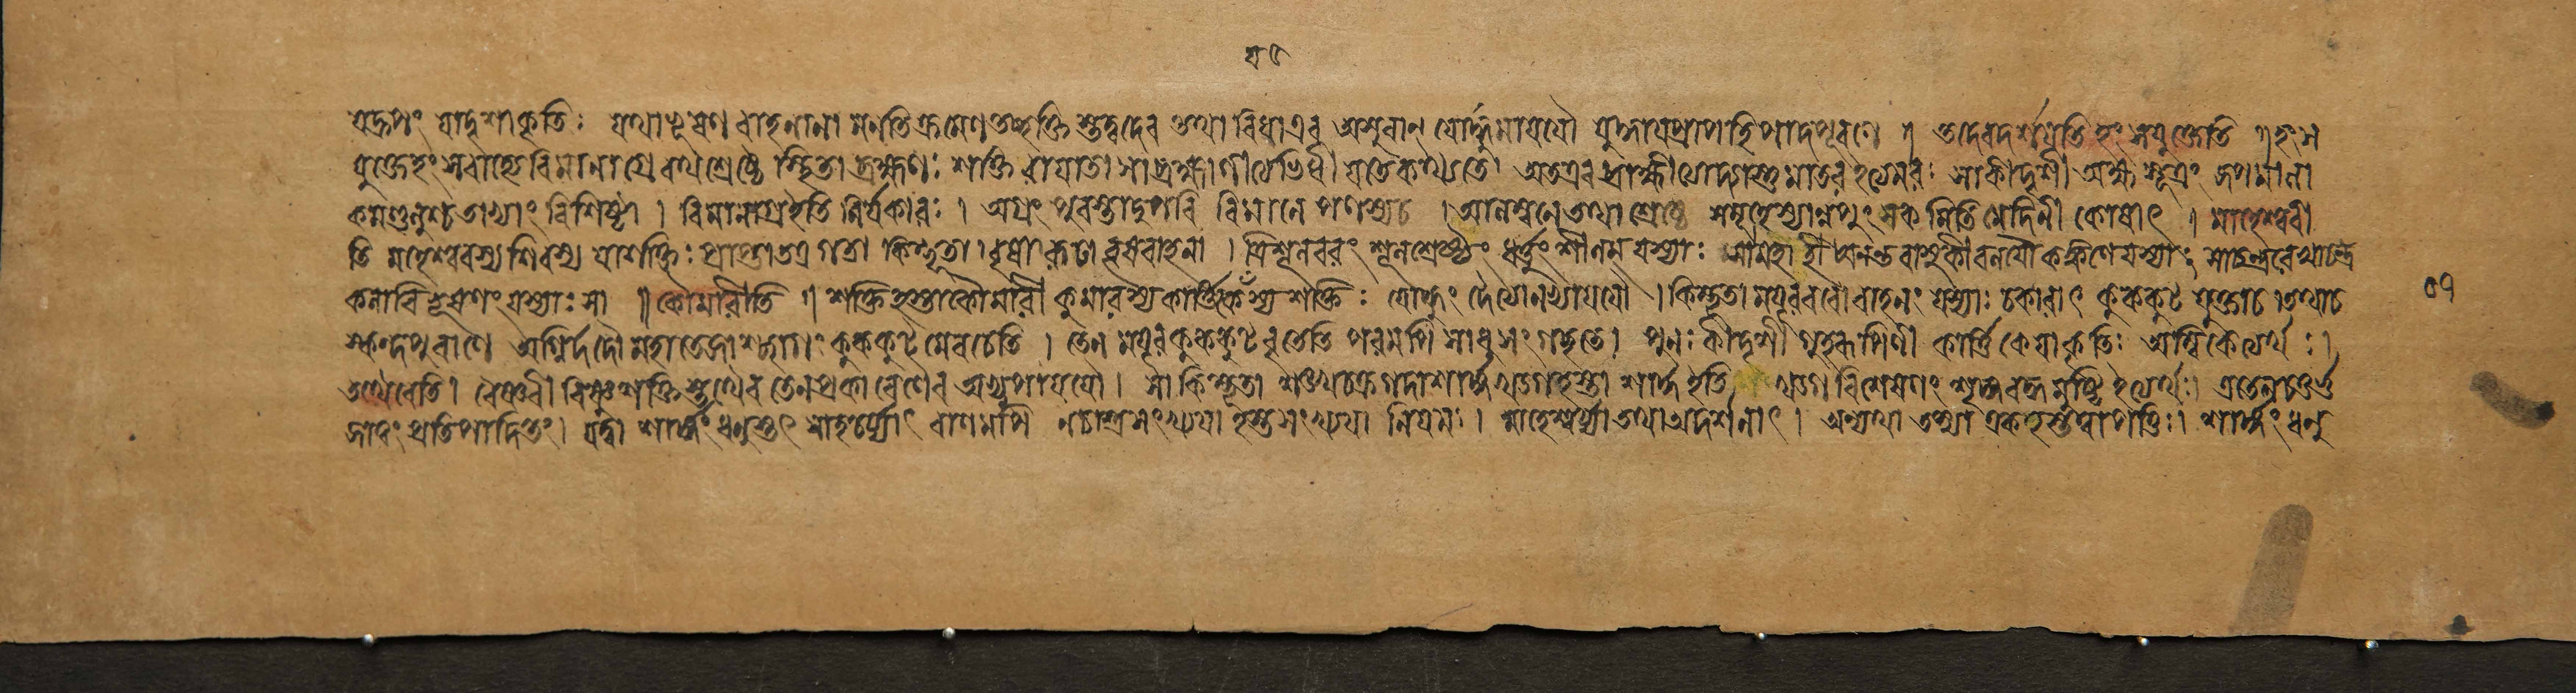 ৭৫
যদ্রূপং যাদৃশাকৃতিঃ যথাভূষণ বাহনানা মনতিক্রমেণ তচ্ছক্তি স্তদ্বদেব তথা বিধাএব অসুরান্ যোদ্ধুমাযযৌ যুদ্ধাযপ্রাপ হিপাদপূরণে ॥ তদেবদর্শযতি হংসযুক্তেতি ॥ হংস
যুক্তেহংসবাহ্যেবিমানাগ্রে শ্রেষ্ঠে স্থিতা ব্রহ্মণঃ শক্তি রাযাতা সাব্রহ্মাণীত্যভিধীযতে কথ্যতে অতএব ব্রাহ্মীত্যাদ্যাস্তু মাতর ইত্যমরঃ সাকীদৃশী অক্ষসূত্রং জপমালা
কমণ্ডলুশ্চ তাভ্যাং বিশিষ্টা । বিমানাগ্রইতি । অগ্রং পুরস্তাদুপরি বিমানে পলস্যচ । আলম্বনেতথাশ্রেষ্ঠে সমূহেস্যান্নপুংসক মিতি মেদিনী কোষাৎ । মাহেশ্বরী
তি মহেশ্বরস্যশিবস্য যাশক্তিঃ প্রাপ্তাতত্রগতা কিম্ভূতা । বৃষারূঢা বৃষবাহনা । ত্রিশূলবরং শূলশ্রেষ্ঠং ধর্ত্তুংশীলমস্যাঃ অনন্তবাসুকীবলযৌকঙ্কণেযস্যাঃ সাচন্দ্ররেখাচন্দ্র
কলাবিভূষণংযস্যাঃ সা ॥ কৌমারীতি ॥ শক্তিহস্তাকৌমারী কুমারস্যকার্ত্তিকেযস্যশক্তিঃ যোদ্ধুং দৈত্যানভ্যাযযৌ । কিম্ভূতা মযূরবরোবাহনং যস্যাঃ চকারাৎ কুক্কুট যুক্তাচ । তথাচ ৩৭
স্কন্দপুরাণে অগ্নির্দদৌ মহাতেজা কুক্কুটমেবচেতি । তেন মযূরকুক্কুট পরমপি সাধুসংগচ্ছতে । পুনঃ কীদৃশী গুহরূপিণী কার্ত্তিকেযাকৃতিঃ অম্বিকেত্যর্থঃ ।
তথৈবেতি । বৈষ্ণবী বিষ্ণুশক্তিস্তথৈব তেনপ্রকারেণৈব অভ্যুপাযযৌ । সা কিম্ভূতা শঙ্খচক্রগদাশার্ঙ্গখড্গহস্তা শার্ঙ্গইতি খড্গবিশেষণং ইত্যর্থঃ । এতেনচতুর্ভু
জত্বং প্রতিপাদিতং । যদ্বা শার্ঙ্গং ধনুস্তৎ সাহচর্য্যাৎ বাণমপি নচাস্ত্রসংখ্যযা হস্তসংখ্যযা নিযমঃ । মাহেশ্বর্য্যাং তথাঅদর্শনাৎ । অন্যথা তস্যা শার্ঙ্গংধনু